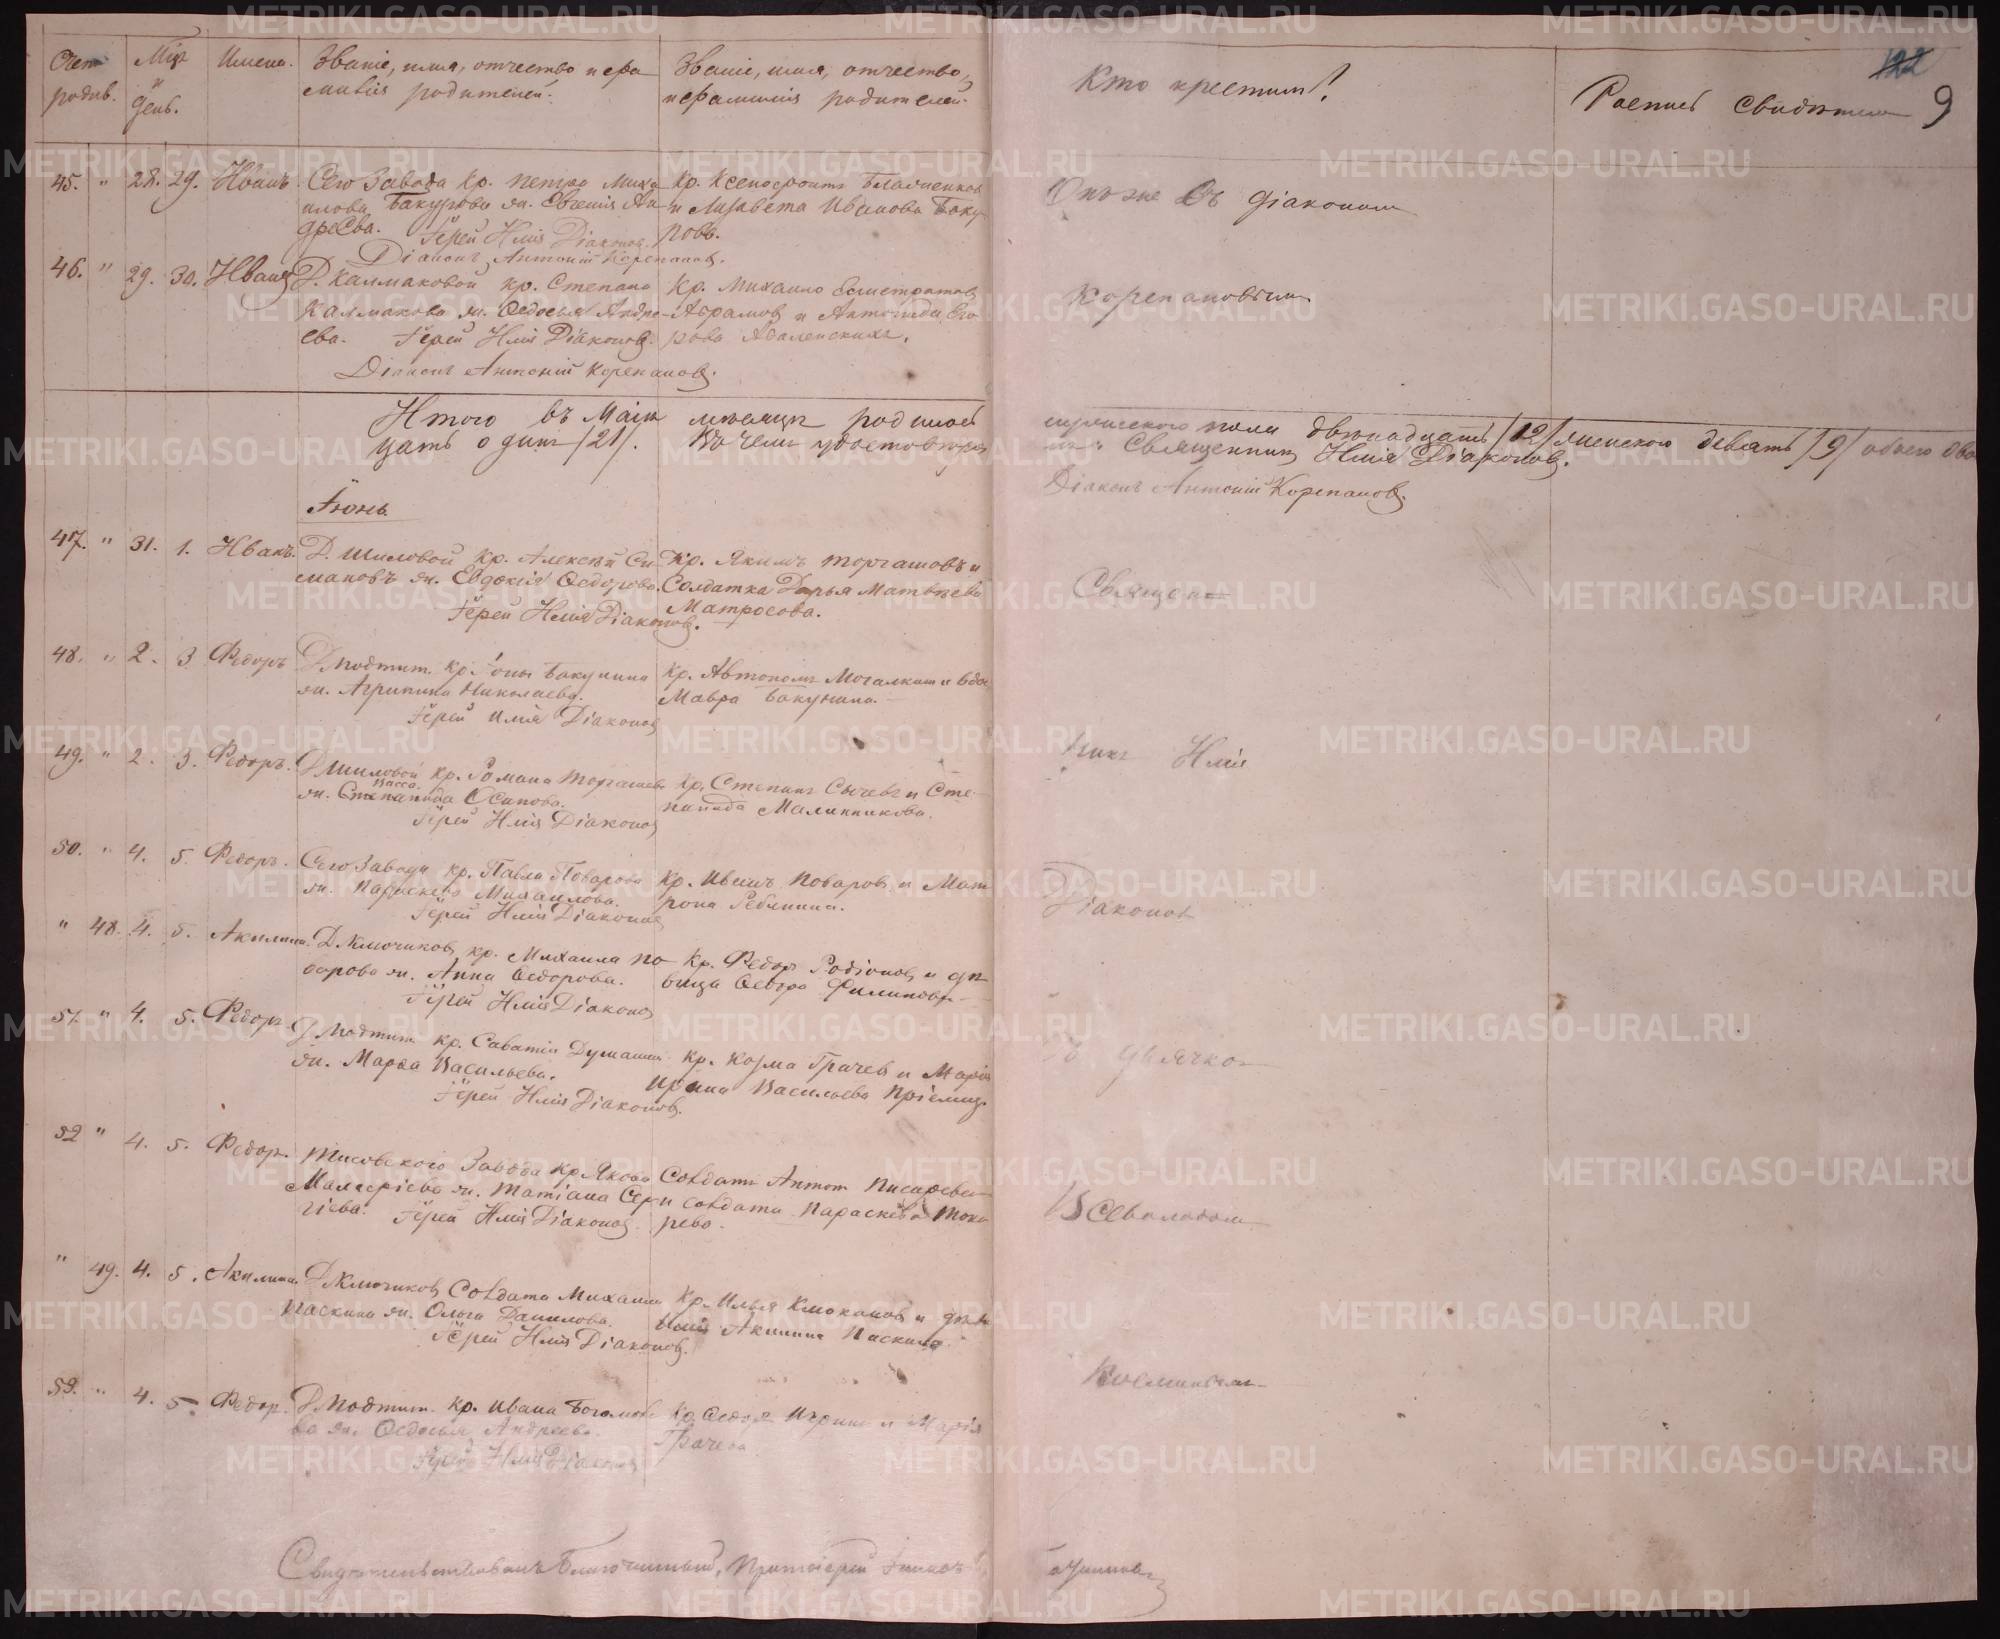 Счет родив.
Мцъ и день.
Имена.
Званіе, имя, отчество и фа
милія родителей.
Званіе, имя, отчество,
и фамилія родителей.
Кто крестил?
Роспись свидѣтеля
122
9
45. " 28. 29. Иванъ. Сего Завода кр. Петра Миха
илова Бакурова ж. Евгенія Ан
дреева. Іерей Илія Діаконов.
Діаконъ Антоній Корепанов.
Кр. Ксенофонтъ
и Лизавета Иванова Баку
рова.
Онъ же съ діакономъ
46. " 29. 30. Иванъ Д. Калмаковой кр. Степана
Калмакова ж. Ѳедосья Андре
ева. Іерей Илія Діаконов.
Діаконъ Антоній Корепанов.
Кр. Михаило
Аврамов и Его
рова
Корепановымъ
Итого въ Маіѣ мѣсяцѣ родилось
мужескаго пола двѣнадцать /12/ женского девять /9/ обоего два
цать одинъ /21/. Въ чемъ удостовѣряем
Священникъ Илія Діаконов.
Діаконъ Антоній Корепанов.
Іюнь
47. " 31. 1. Иванъ. Д. Шиловой кр. Алексѣй Си
мановъ ж. Евдокія Ѳедорова.
Іерей Илія Діаконов.
Кр. Якимъ Торгашовъ и
Солдатка Дарья Матвѣева
Матросова.
Священ
48. " 2. 3 Федоръ Д. Подтит. кр. Іоны Бакунина
ж. Агрипина Николаева.
Іерей Илія Діаконов
Кр. Автономъ и вдо
Мавра Бакунина.
49. " 2. 3. Федоръ. Д. Шиловой кр. Романа Торгашев
Васса
ж. Степанида Осипова.
Іерей Илія Діаконов
Кр. Степанъ Сычевъ и Сте
панида Малинникова.
никъ Илія
50. " 4. 5. Федоръ. Сего Завода кр. Павла Поварова
ж. Параскева Михаилова.
Іерей Илія Діаконов
Кр. Иванъ Поваров и Мат
рона Ребянина.
Діаконов
" 48. 4. 5. Акилина. Д. Ключиков кр. Михаила По
варова ж. Анна Ѳедорова.
Іерей Илія Діаконов
Кр. Федор Родіонов и дѣ
вица Ѳедора Филипова
51. " 4. 5. Федоръ Д. Подтит. кр. Саватія Думашин
ж. Марѳа Васильева.
Іерей Илія Діаконов.
Кр. Козма Грачев и Марія
Ирина Васильева
съ дьячко
52 " 4. 5. Федор. Тисовского Завода кр. Якова
Малафіева ж. Татіана Сер
гіева. Іерей Илія Діаконов.
Солдатъ Антон Писарева
и солдатка Параскева Тока
рева.
Всеволодом
" 49. 4. 5. Акилина. Д. Ключиков, Солдата Михаила
Паскина ж. Ольга Данилова.
Іерей Илія Діаконов.
Кр. Илья и
Акилина Паскина
53. " 4. 5 Федор. Д. Подтит. кр. Ивана Богомоло
ва ж. Ѳедосья Андреева.
Іерей Илія Діаконов
Кр. Ѳедоръ и Марія
Грачева.
Свидѣтельствовалъ Благочинный, Протоіерей
METRIKI.GASO-URAL.RU